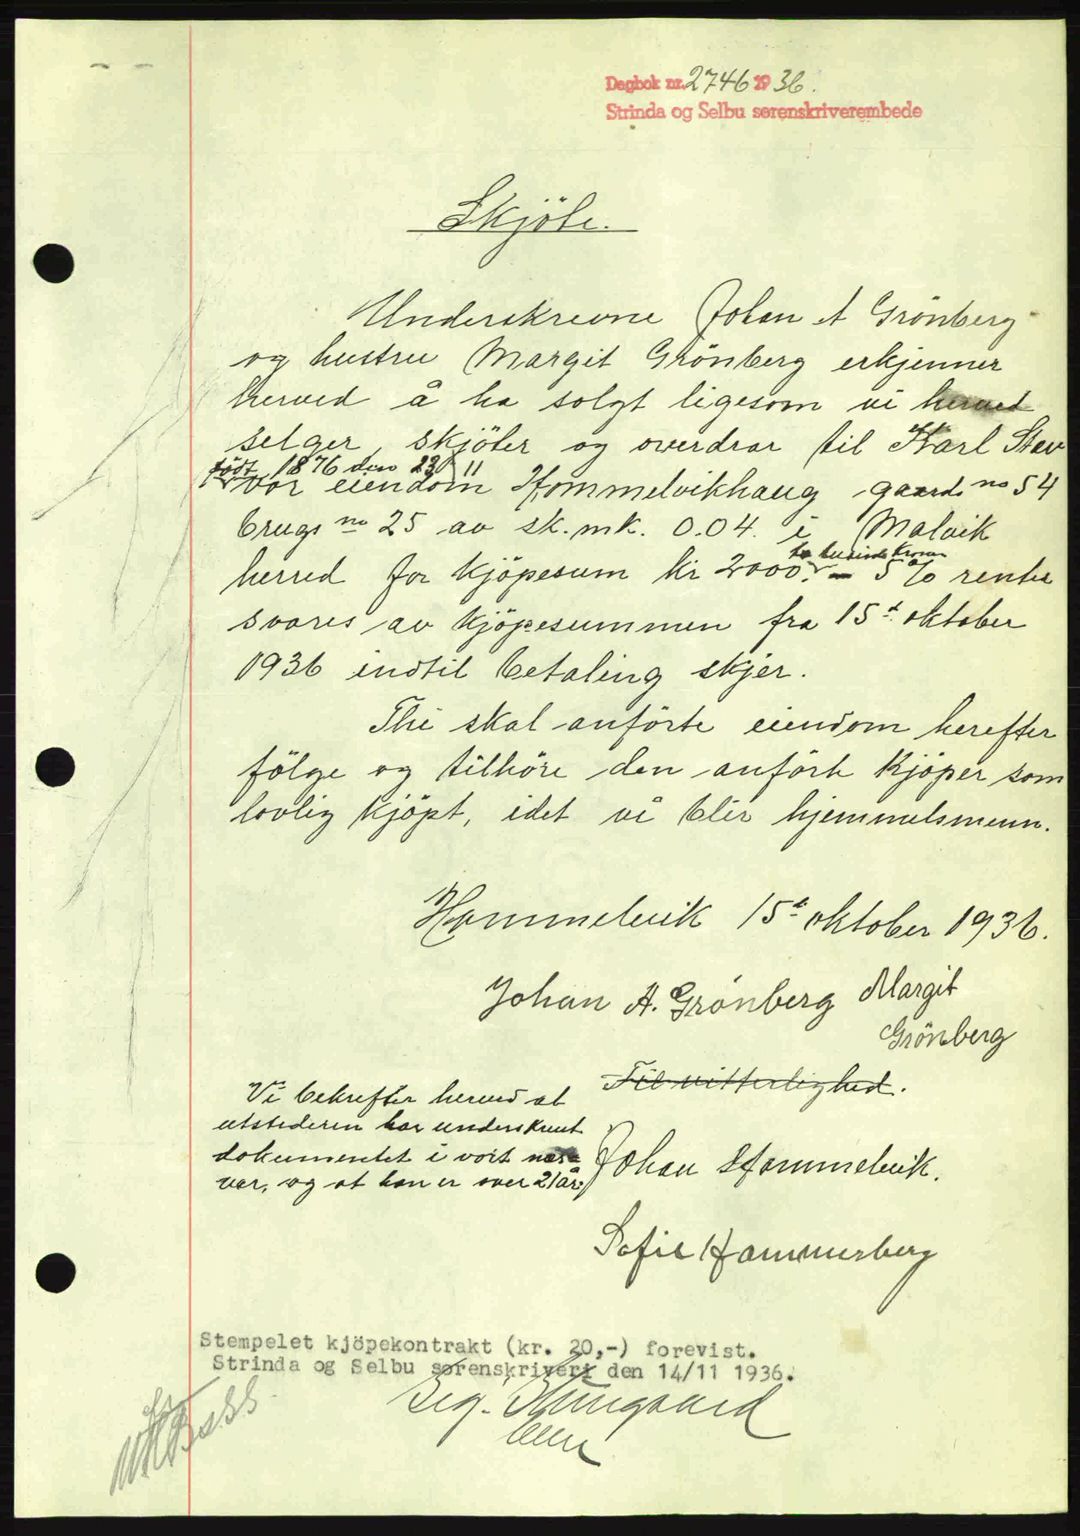 Dagbok nr. 2746 1936.
Strinda og Selbu sorenskriverembede
Skjöte.
Underskrevne Johan A Grönberg
og hustru Margit Grönberg erkjenner
herved å ha solgt ligesom vi herved
selger, skjöter og overdrar til Karl Stav
född 1876 den 23/11
vor eiendom Hommelvikhaug gaards no 54
brugs no 25 av sk.mk. 0.04. i Malvik
to tusinde kroner
herred for kjöpesum kr 2000.- 5 % renter
svares av kjöpesummen fra 15t oktober
1936 indtil betaling skjer.
Thi skal anförte eiendom herefter
fölge og tilhöre den anförte kjöper som
lovlig kjöpt, idet vi blir hjemmelsmenn.
Hommelvik 15t oktober 1936.
Johan A. Grönberg Margit
Grönberg
Til vitterlighed.
Vi bekrefter herved at
utstederen har underskrevet
dokumentet i vort nær=
vær, og at han er over 21 år.
Johan Hommelvik.
Sofie Hammerberg
Stempelet kjöpekontrakt (kr. 20,-) forevist.
Strinda og Selbu sorenskriveri den 14/11 1936.